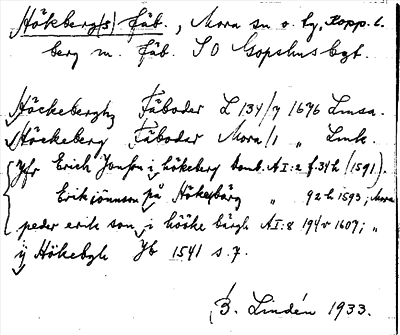 Hökberg(s) fäb., Mora sn o. by, Kopp. l.
berg m. fäb. SO Gopshus bgt.
Höckeberghz Fäboder L 134/7 1676 Linsa.
Höckeberg Fäboder Mora/1 " Link.
Jfr Erich Jonson i hökeberg tomb. A I:2 f. 34 h (1591).
Erik jönnson på Hökebärg " 92 h 1593; Mora
peder erik son i hööke bärgh A I:8 194 v 1607; "
ij Hökebgh Jb 1541 s. 7.
B. Lindén 1933.